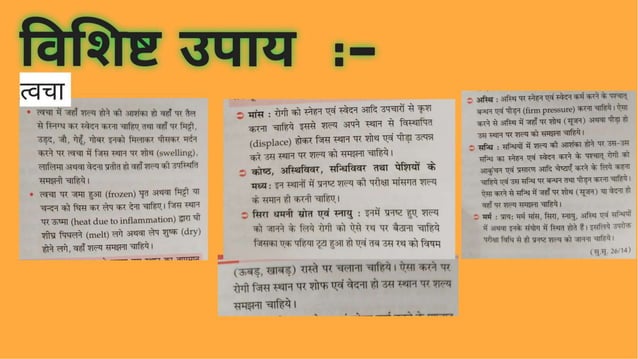 विशिष्ट उपाय :-
त्वचा
• त्वचा में जहाँ शल्य होने की आशंका हो वहाँ पर तैल
से स्निग्ध कर स्वेदन करना चाहिए तथा वहाँ पर मिट्टी,
उड़द, जौ, गेहूँ, गोबर इनको मिलाकर पीसकर मर्दन
करने पर त्वचा में जिस स्थान पर शोथ (swelling),
लालिमा अथवा वेदना प्रतीत हो वहाँ शल्य की उपस्थिति
समझनी चाहिये।
• त्वचा पर जमा हुआ (frozen) घृत अथवा मिट्टी या
चन्दन को घिस कर लेप कर देना चाहिए। जिस स्थान
पर ऊष्मा (heat due to inflammation) द्वारा घी
शीघ्र पिघलने (melt) लगे अथवा लेप शुष्क (dry)
होने लगे, वहाँ शल्य समझना चाहिये।
मांस : रोगी को स्नेहन एवं स्वेदन आदि उपचारों से कृश
करना चाहिये इससे शल्य अपने स्थान से विस्थापित
(displace) होकर जिस स्थान पर शोथ एवं पीड़ा उत्पन्न
करे उस स्थान पर शल्य को समझना चाहिये।
कोष्ठ, अस्थिविवर, सन्धिविवर तथा पेशियों के
मध्य : इन स्थानों में प्रनष्ट शल्य की परीक्षा मांसगत शल्य
के समान ही करनी चाहिए।
सिरा धमनी स्रोत एवं स्नायु : इनमें प्रनष्ट हुए शल्य
को जानने के लिये रोगी को ऐसे रथ पर बैठाना चाहिये
जिसका एक पहिया टूटा हुआ हो एवं तब उस रथ को विषम
(ऊबड़, खाबड़) रास्ते पर चलाना चाहिये। ऐसा करने पर
रोगी जिस स्थान पर शोफ एवं वेदना हो उस स्थान पर शल्य
समझना चाहिये।
अस्थि : अस्थि पर स्नेहन एवं स्वेदन कर्म करने के पश्चात्
बन्धन एवं पीड़न (firm pressure) करना चाहिये। ऐसा
करने से अस्थि में जहाँ पर शोथ (सूजन) अथवा पीड़ा हो
उस स्थान पर शल्य को समझना चाहिये।
सन्धि : सन्धियों में शल्य की आशंका होने पर उस-उस
सन्धि का स्नेहन एवं स्वेदन करने के पश्चात् रोगी को
आकुंचन एवं प्रसारण आदि चेष्टाएँ करने के लिये कहना
चाहिये एवं उस सन्धि पर बन्धन तथा पीड़न करना चाहिये।
ऐसा करने से सन्धि में जहाँ पर शोथ (सूजन) या वेदना हो
वहाँ पर शल्य समझना चाहिये।
मर्म : प्रायः मर्म मांस, सिरा, स्नायु, अस्थि एवं सन्धियों
में अथवा इनके संयोग में स्थित होते हैं। इसलिये उपरोक्त
परीक्षा विधि से ही प्रनष्ट शल्य को जानना चाहिये।
(सु.सू. 26/14)